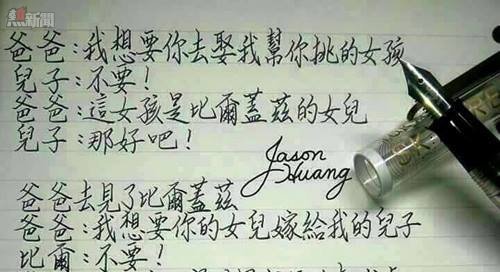 熱新聞
爸爸:我想要你去娶我幫你挑的女孩
兒子:不要!
爸爸:這女孩是比爾蓋茲的女兒
兒子:那好吧!
Jason Huang
爸爸去見了比爾蓋茲
爸爸:我想要你的女兒嫁給我的兒子
比爾:不要!